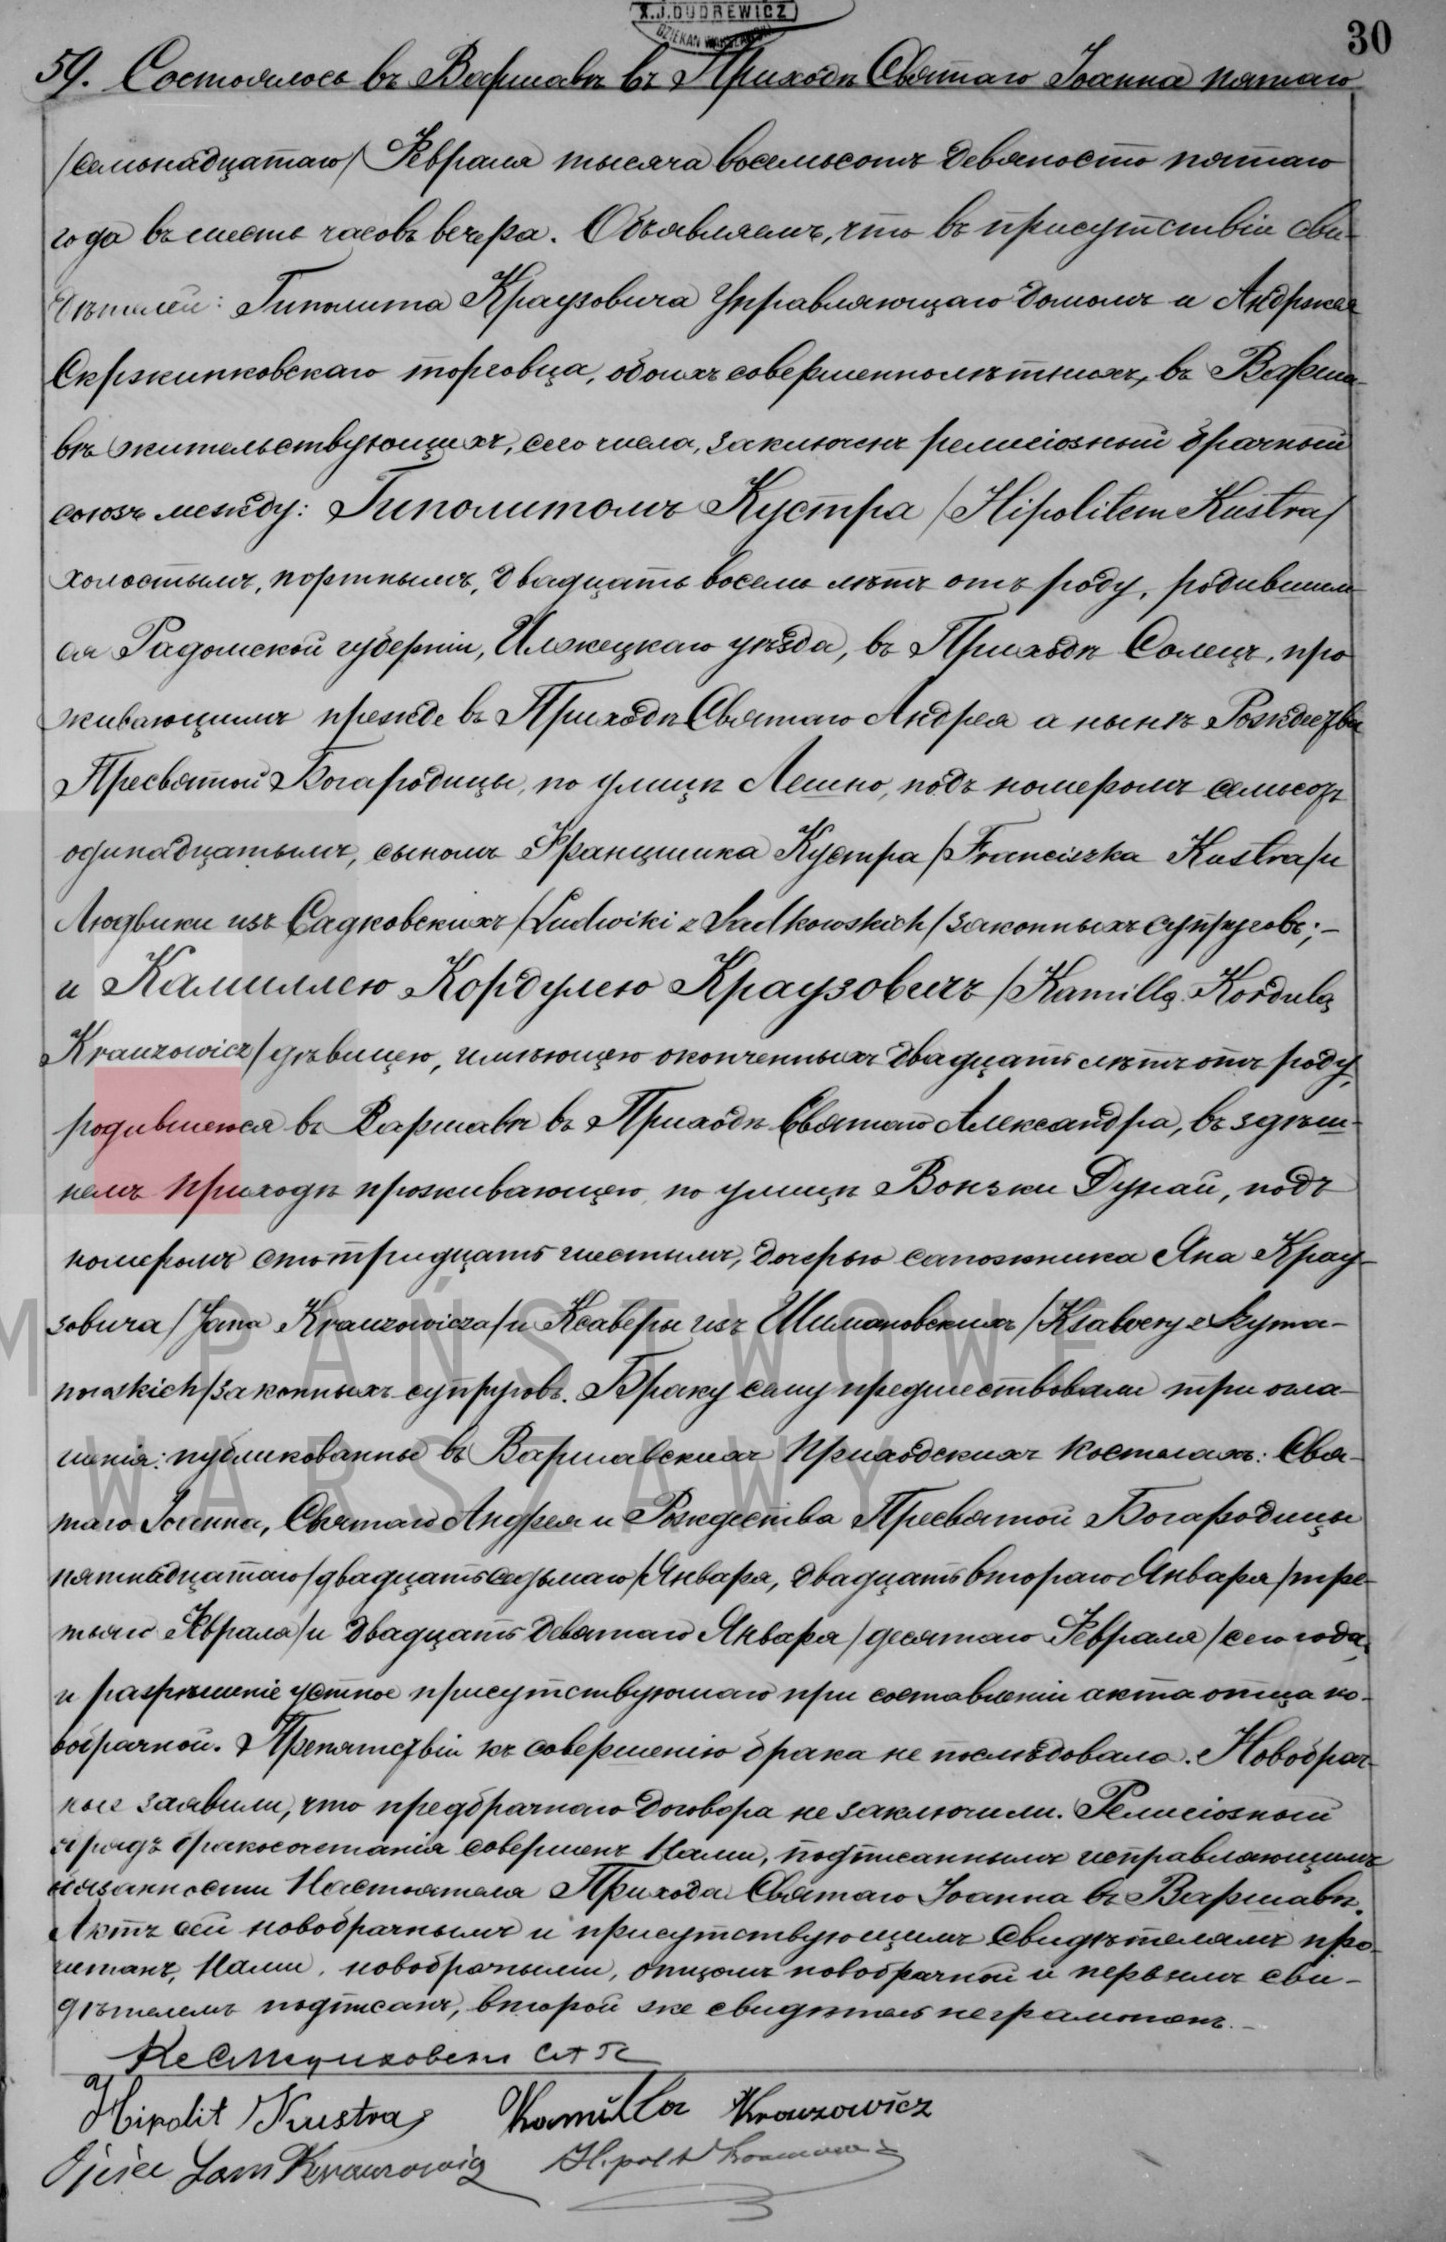 X.J.DUDREWICZ
DZIEKAN WARSZAWSKI
30
59. Состоялось въ Варшавѣ въ Приходѣ Святаго Іоанна пятаго
/семьнадцатаго/ Февраля тысяча восемьсотъ девяносто пятаго
года въ шесть часовъ вечера. Объявляемъ, что въ присутствіи сви-
дѣтелей: Гиполита Краузовича управляющаго домомъ и Андржея
Скржипковскаго торговца, обоихъ совершеннолѣтнихъ, въ Варша-
вѣ жительствующихъ, сего числа, заключенъ религіозный брачный
союзъ между: Гиполитомъ Кустра /Hipolitem Kustra/
холостымъ, портнымъ, двадцать восемь лѣтъ отъ роду, родившим-
ся Радомской губерніи, Илжецкаго уѣзда, въ Приходѣ Солецъ, про
живающимъ прежде въ Приходѣ Святаго Андрея а нынѣ Рождества
Пресвятой Богародицы, по улицѣ Лешно, подъ номеромъ семьсотъ
одинадцатымъ, сыномъ Францишка Кустра /Franciszka Kustra/ и
Людвики изъ Садковскихъ /Ludwiki z Sadkowskich/ законныхъ супруговъ; –
и Камиллею Кордулею Краузовичъ /Kamillą Kordulą
Krauzowicz/ дѣвицею, имѣющею оконченныхъ двадцать лѣтъ отъ роду,
родившеюся въ Варшавѣ въ Приходѣ Святаго Александра, въ здѣш-
немъ приходѣ проживающею по улицѣ Вонзки Дунай, подъ
номеромъ сто тридцать шестымъ, дочерью сапожника Яна Крау-
зовича /Jana Krauzowicza/ и Ксаверы изъ Шимановскихъ /Ksawery z Szyma-
nowskich/ законныхъ супруговъ. Браку сему предшествовали три огла-
шенія: публикованные въ Варшавскихъ Приходскихъ Костелахъ: Свя-
таго Іоанна, Святаго Андрея и Рождества Пресвятой Богародицы
пятнадцатаго /двадцать седьмаго/ Января, двадцать втораго Января /тре-
тьяго Февраля/ и двадцать девятаго Января /десятаго Февраля/ сего года,
и разрѣшеніе устное присутствующаго при составленіи акта отца но-
вобрачной. Препятствій къ совершенію брака не послѣдовало. Новобрач-
ные заявили, что предбрачнаго договора не заключили. Религіозный
обрядъ бракосочетанія совершенъ Нами, подписаннымъ исправляющимъ
обязанности Настоятеля Прихода Святаго Іоанна въ Варшавѣ.
Актъ сей новобрачнымъ и присутствующимъ свидѣтелямъ про-
читанъ, Нами, новобрачными, отцомъ новобрачной и первымъ сви-
дѣтелемъ подписанъ, второй же свидѣтель неграмотенъ. –
Hipolit Kustra Kamilla Krauzowicz
Ojciec Jan Krauzowicz Hipolit
M PAŃSTWOWE
WARSZAWY